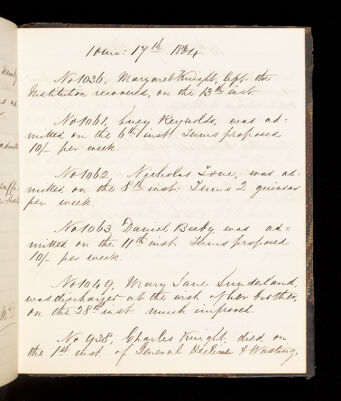 17th 1864
No 1036, Margaret Knight, left the
Institution recovered, on the 13th inst.
No 1061, Lucy Reynolds, was ad=
mitted on the 6th inst. Terms proposed
10/- per week.
No 1062, Nicholas Lowe, was ad-
mitted on the 8th inst. Terms 2 guineas
per week.
No 1063 Daniel Beeby was ad=
mitted on the 11th inst. Terms proposed
10/- per week.
No 1049, Mary Jane Sunderland,
was discharged at the wish of her brother,
on the 28th inst. much improved.
No 938, Charles Knight, died on
the 1st inst. of General Decline & Wasting,